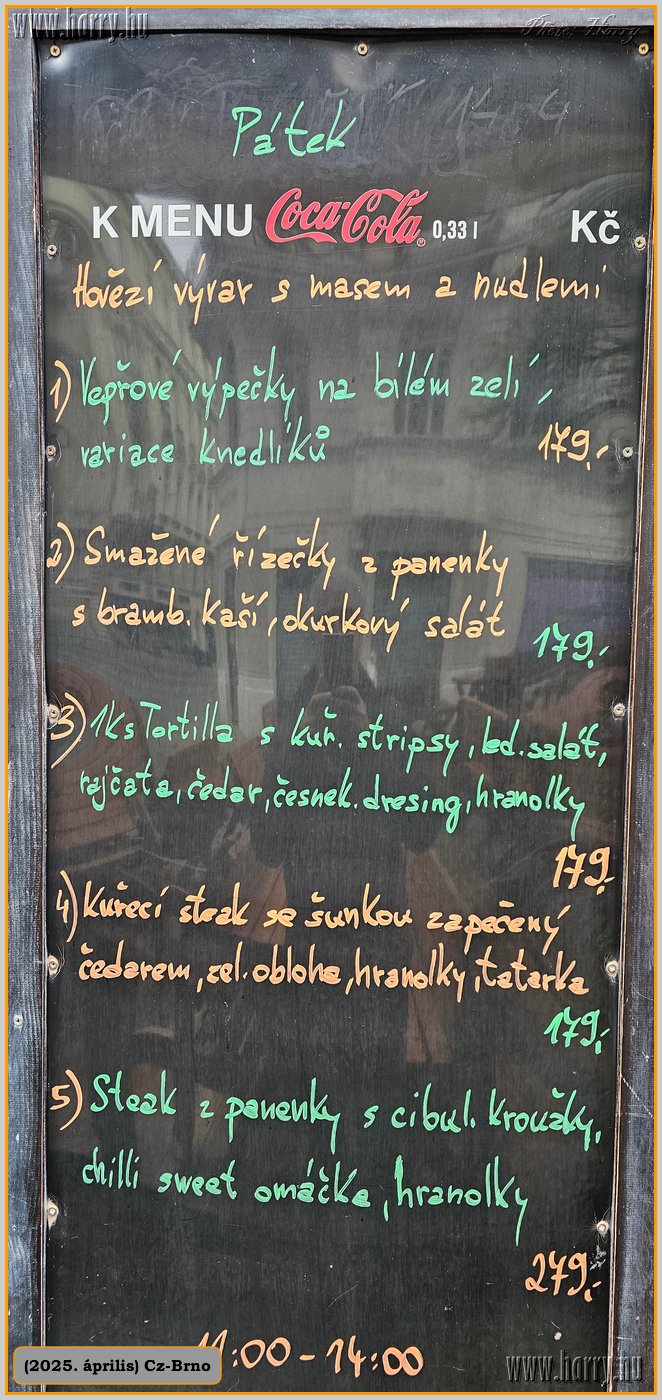 www.horry.hu
Photo: Horry
Pátek
K MENU Coca-Cola 0,33 l Kč
Hovězí vývar s masem a nudlemi
1) Vepřové výpečky na bílém zelí,
variace knedlíků 179,-
2) Smažené řízečky z panenky
s bramb. kaší, okurkový salát
179,-
3) 1ks Tortilla s kuř. stripsy, led. salát,
rajčata, čedar, česnek. dresing, hranolky
179,-
4) Kuřecí steak se šunkou zapečený
čedarem, zel. obloha, hranolky, tatarka
179,-
5) Steak z panenky s cibul. kroužky,
chilli sweet omáčka, hranolky
279,-
11:00 - 14:00
(2025. április) Cz-Brno
www.horry.hu